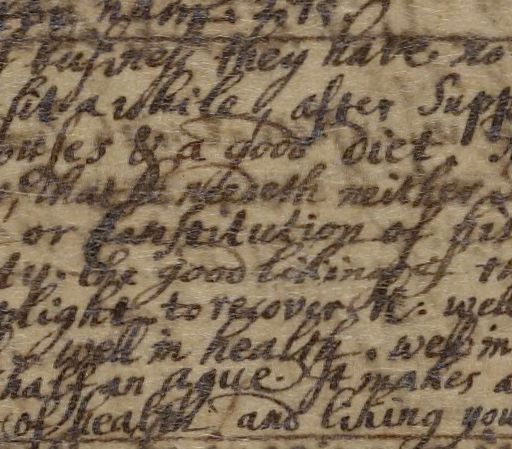 business they have no
sit a while, after Supp
ouses & a good diet.
that needeth neither
or Constitution of his
ty. the good liking of th
plight. to recover it. well
well in health. well in
half an ague. It makes a
of health and liking you